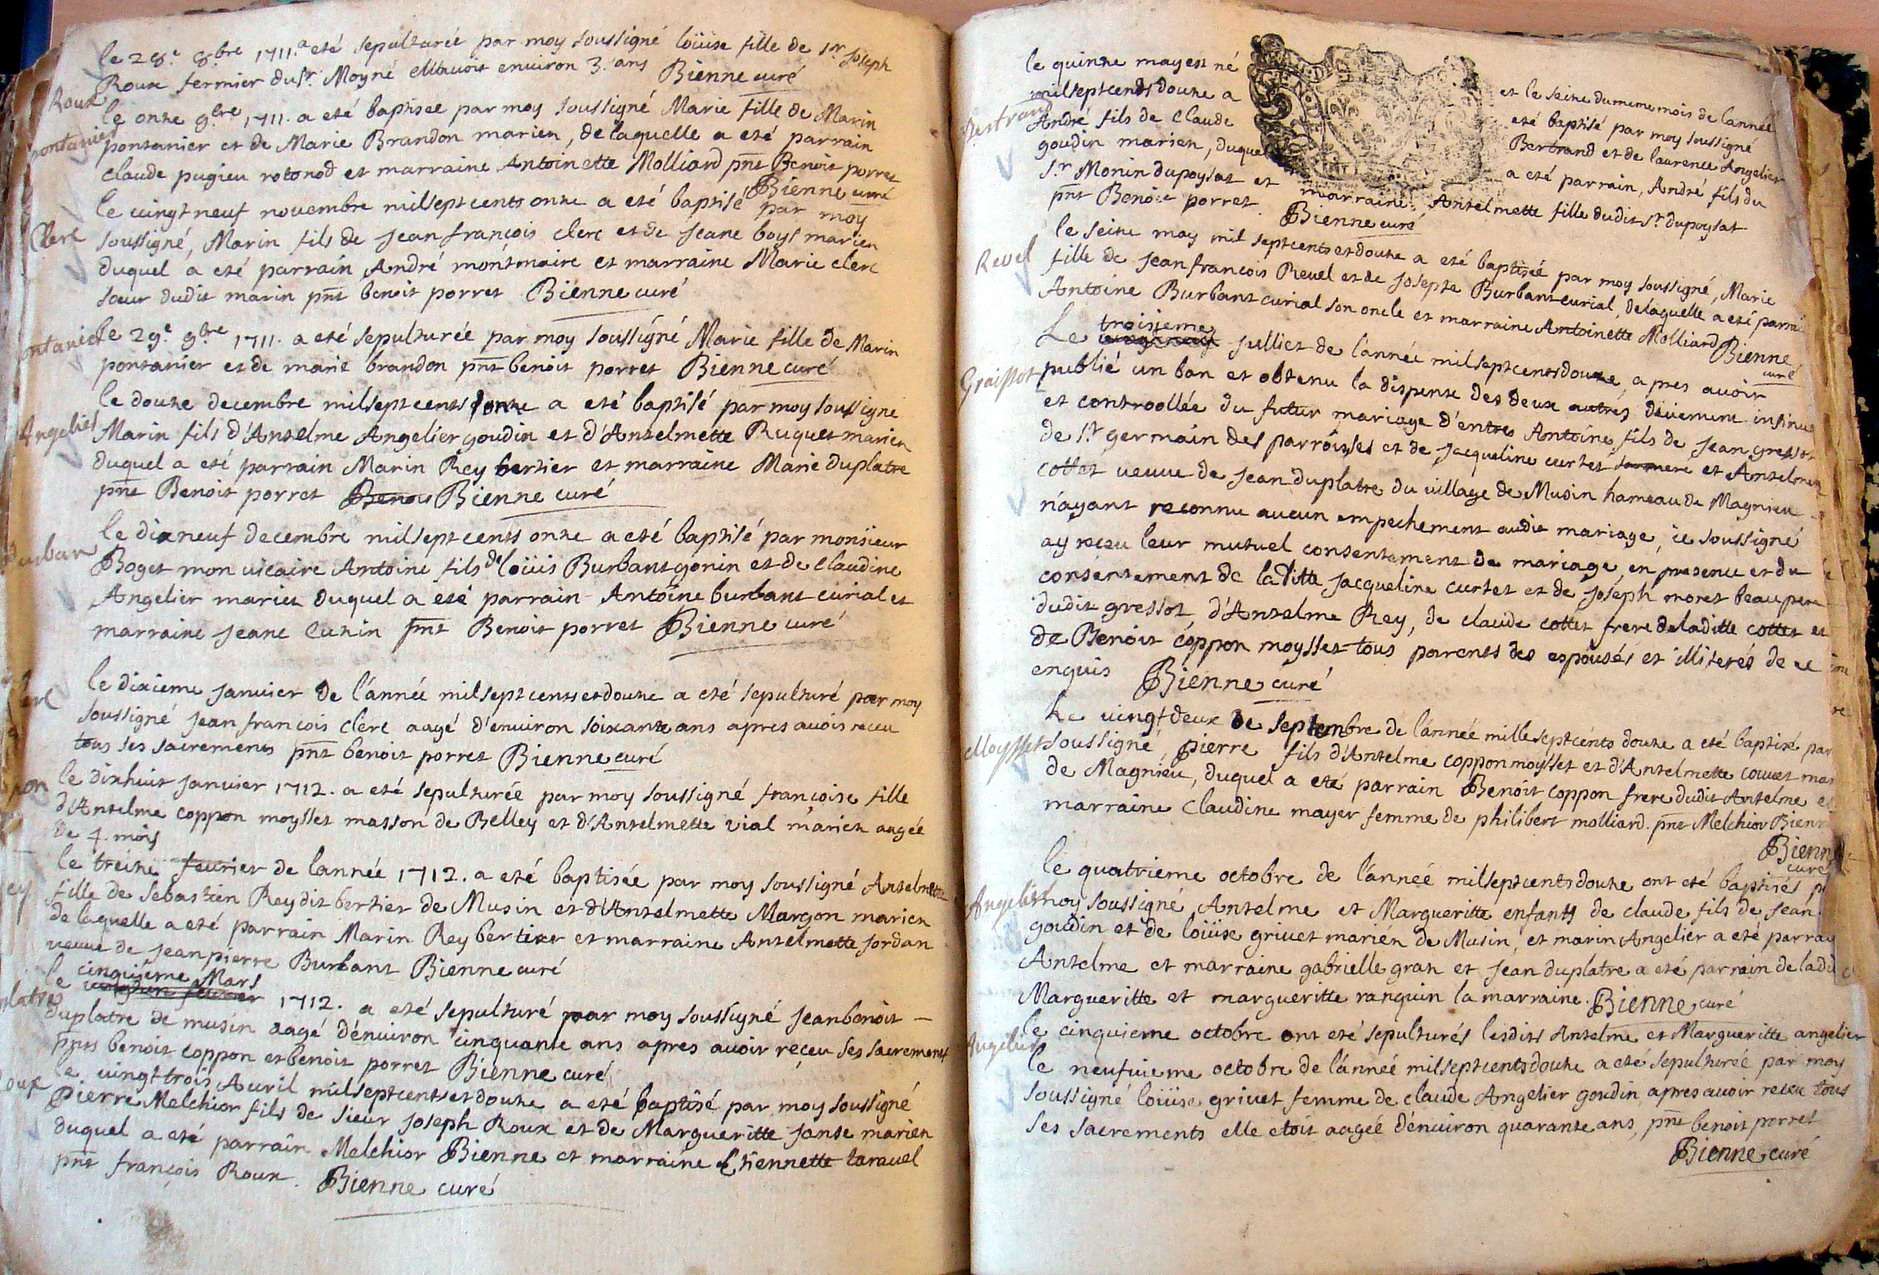 le 28e 8bre 1711. a eté sepulturée par moy soussigné loüise fille de sr Joseph
Roux fermier du sr Moyne elle avoit environ 3. ans Bienne curé
Roux
le onze 9bre 1711. a eté baptisee par moy soussigné Marie fille de Marin
pontanier
pontanier et de Marie Brandon mariez, de laquelle a eté parrain
claude pugieu rotonod et marraine Antoinette Molliard pnt Benoit porret
Bienne curé
le vingt neuf novembre mil sept cents onze a eté baptisé par moy
Clerc
soussigné, Marin fils de jean françois clerc et de jeane boys mariez
duquel a eté parrain André montmaire et marraine Marie clerc
sœur dudit marin pnt benoit porret Bienne curé
pontanier
le 29e 9bre 1711. a eté sepulturée par moy soussigné Marie fille de Marin
pontanier et de marie brandon pnt benoit porret Bienne curé
le douze decembre mil sept cents onze a eté baptisé par moy soussigné
Angelier
Marin fils d'Antelme Angelier goudin et d'Antelmette Ruquet mariez
duquel a eté parrain Marin Rey bertier et marraine Marie duplatre
pnt Benoit porret Benoi Bienne curé
le dixneuf decembre mil sept cents onze a eté baptisé par monsieur
burban
Boget mon vicaire Antoine fils de loüis Burbant gonin et de claudine
Angelier mariez duquel a eté parrain Antoine burbant curial et
marraine jeane luzin pnt Benoit porret Bienne curé
le dixieme janvier de l'année mil sept cents et douze a eté sepulturé par moy
Clerc
soussigné jean françois clerc aagé d'environ soixante ans apres avoir receu
tous ses sacrements pnt benoit porret Bienne curé
le dixhuit janvier 1712. a eté sepulturée par moy soussigné françoise fille
d'Antelme coppon moysset masson de Belley et d'Antelmette vial mariez aagée
de 4. mois
le treize fevrier de lannée 1712. a eté baptisée par moy soussigné Antelmette
fille de Sebastien Rey dit bertier de Musin et d'Antelmette Marcon mariez
de laquelle a eté parrain Marin Rey bertier et marraine Antelmette jordan
veuve de jean pierre Burbant Bienne curé
cinquieme Mars
le 1712. a eté sepulturé par moy soussigné jean benoit
duplatre de musin aagé d'environ cinquante ans apres avoir receu ses sacrements
pnts benoit coppon et benoit porret Bienne curé
le vingt trois Avril mil sept cents et douze a eté baptisé par moy soussigné
Roux
Pierre Melchior fils de sieur joseph Roux et de Margueritte janse mariez
duquel a eté parrain Melchior Bienne et marraine Etiennette taravel
pnt françois Roux. Bienne curé
le quinze may est né et le seize du meme mois de lannée
mil sept cents douze a eté baptisé par moy soussigné
Bertrand
André fils de Claude Bertrand et de laurence Angelier
goudin mariez, duquel a eté parrain, André fils du
sr Monin dupoysat et marraine Antelmette fille dudit sr dupoysat
pnt Benoit porret Bienne curé
le seize may mil sept cents et douze a eté baptisée par moy soussigné, Marie
Revel
fille de jean françois Revel et de josepte Burbant curial, de laquelle a eté parrain
Antoine Burbant curial son oncle et marraine Antoinette Molliard Bienne
curé
troisieme
Le julliet de l'année mil sept cents douze, apres avoir
Graissot
publié un ban et obtenu la dispense des deux autres, deüement insinué
et controollée du futur mariage d'entre Antoine fils de jean gressot
de st germain des parroisses et de jacqueline curtet et Antelmette
cottet veuve de jean duplatre du village de Musin hameau de Magnieu
n'ayant reconnu aucun empechement audit mariage, je soussigné
ay receu leur mutuel consentement de mariage en presence et du
consentement de laditte jacqueline curtet et de joseph moret beaupere
dudit gressot, d'Antelme Rey, de claude cottet frere de laditte cottet et
de Benoit coppon moysset tous parents des espousés et illiterés de ce
enquis Bienne curé
Le vingt deux de septembre de l'année mille sept cents douze a eté baptisé par
Moysset
soussigné, pierre fils d'Antelme coppon moysset et d'Antelmette couvet
de Magnieu, duquel a eté parrain Benoit coppon frere dudit Antelme et
marraine Claudine mayer femme de philibert molliard. pnt Melchior Bienne
Bienne
curé
le quatrieme octobre de l'année mil sept cents douze ont eté baptisés
Angelier
moy soussigné Antelme et Margueritte enfants de claude fils de jean
goudin et de loüise grivet mariés de Musin, et marin Angelier a eté parrain
Antelme et marraine gabrielle gran et jean duplatre a eté parrain de laditte
Margueritte et margueritte ranquin la marraine. Bienne curé
Angelier
le cinquieme octobre ont eté sepulturés lesdits Antelme et Margueritte angelier
le neufvieme octobre de l'année mil sept cents douze a eté sepulturée par moy
soussigné loüise grivet femme de claude Angelier goudin apres avoir receu tous
ses sacrements elle etoit aagée d'environ quarante ans, pnt benoit porret
Bienne curé